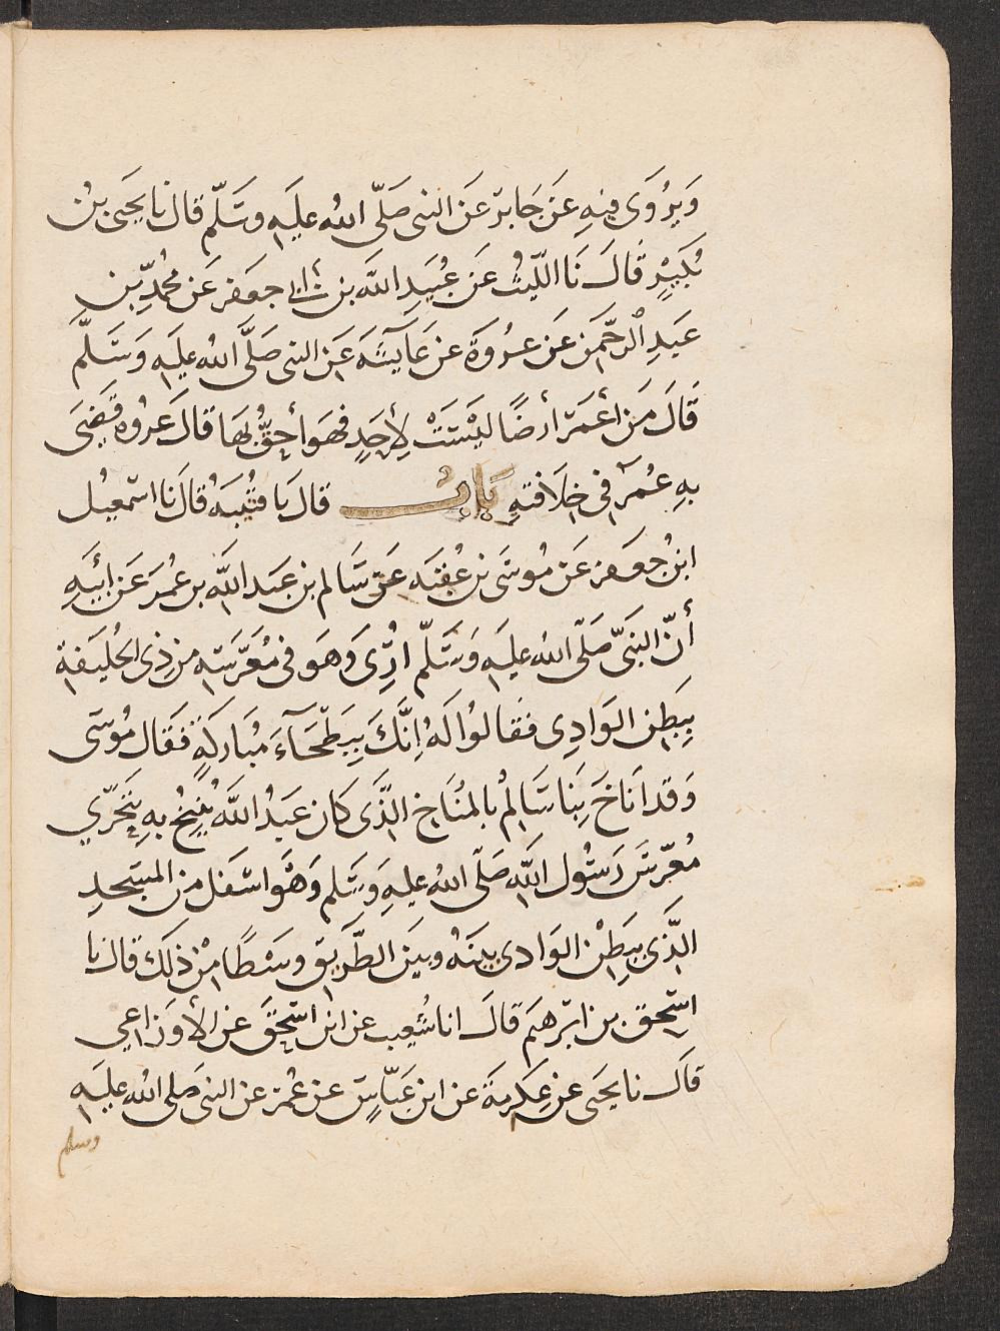 وَيُرْوَى فِيهِ عَن جَابِر عَنَ النبى صَلَّى اللهُ عليَهِ وسَلَّم قال نا يَحيى بنُ
بُكَيْرٍ قَالَ نَا اللّيثُ عَن عُبَيدِ اللَّه بن أبى جعفر عَن محُمّدِ بنِ
عَبدِ الرّحمَن عَن عرُوَةَ عن عَآيشَةَ عَن النبى صَلَّى اللهُ عليَهِ وَسَلَّمَ
قَالَ مَن أَعْمَرَ أَرضًا ليَسَتْ لِأَحَدٍ فهوَ أَحقُّ بهَا قالَ عَروُه قَضَى
بهِ عُمَرُ فى خِلَافتهِ بَابٌ قال نَا قتُيَبَهُ قالَ نا اسمعيُل
ابنُ جعَفر عَن مُوسَى بن عُقبَه عَن سَالم بن عَبد اللَّه بن عُمَرَ عَن ابَيهِ
أنّ النبَىَّ صَلّى الله عليَهِ وَسَلّم ارُِىَ وَهوَ فى مُعَرَّسَهِ من ذِى الحُليَفَةِ
بِبَطِن الوَادِى فقَالوُا لَهُ إنَّكَ بِبَطْحَآءَ مُبَارَكَةٍ فقَال مُوسَى
وَقد انَاخَ بِنَا سَالمٌ بالمُنَاخِ الذَّى كان عَبدُ اللَّه يُنِيخُ بهِ يَتَحَرّي
مُعَرّسَ رَسُول اللَّه صَلّى اللهُ عليهِ وَسَلم وَهُوَ اسَفل من المسَجدِ
الذَّى بِبَطِن الوَادى بيَنَهُ وبيَن الطَّريَق وسَطًا مِنْ ذلكَ قال نا
اسِحَق بن ابرَهيمَ قالَ انا شُعَيب عن ابن اسحَقَ عن الأَوزَاعي
قالَ نا يحَيَى عن عِكرمَةَ عن ابن عَبّاسٍ عن عُمَر عن النبى صَلى الله عليَهِ
وسلم